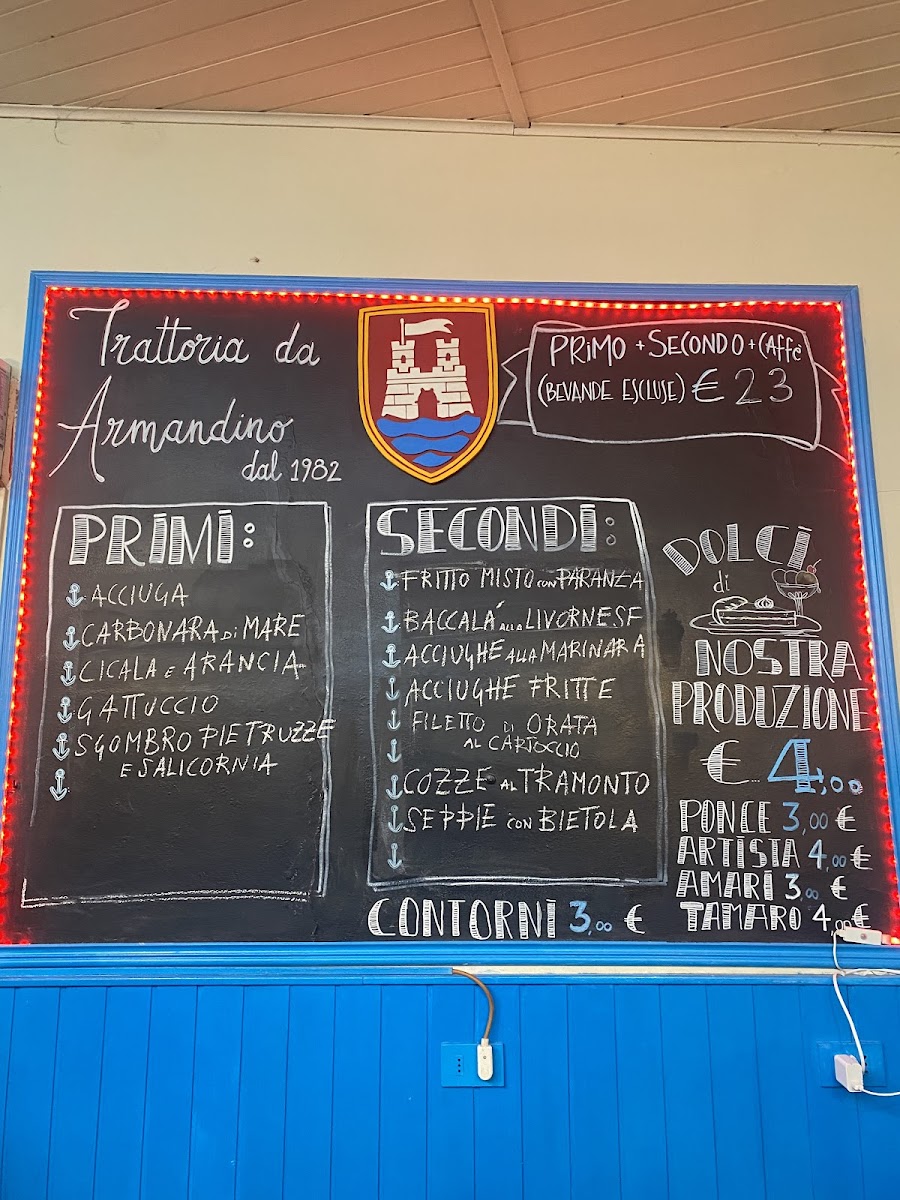 Trattoria da
Armandino
dal 1982
PRIMO + SECONDO + CAFFè
(BEVANDE ESCLUSE) € 23
PRIMI:
ACCIUGA
CARBONARA di MARE
CICALA E ARANCIA
GATTUCCIO
SGOMBRO PIETRUZZE
E SALICORNIA
SECONDI:
FRITTO MISTO con PARANZA
BACCALÁ alla LIVORNESE
ACCIUGHE ALLA MARINARA
ACCIUGHE FRITTE
FILETTO DI ORATA
AL CARTOCCIO
COZZE AL TRAMONTO
SEPPIE con BIETOLA
CONTORNI 3,00 €
DOLCI
di
NOSTRA
PRODUZIONE
€ 4,00
PONCE 3,00 €
ARTISTA 4,00 €
AMARI 3,00 €
TAMARO 4,00 €